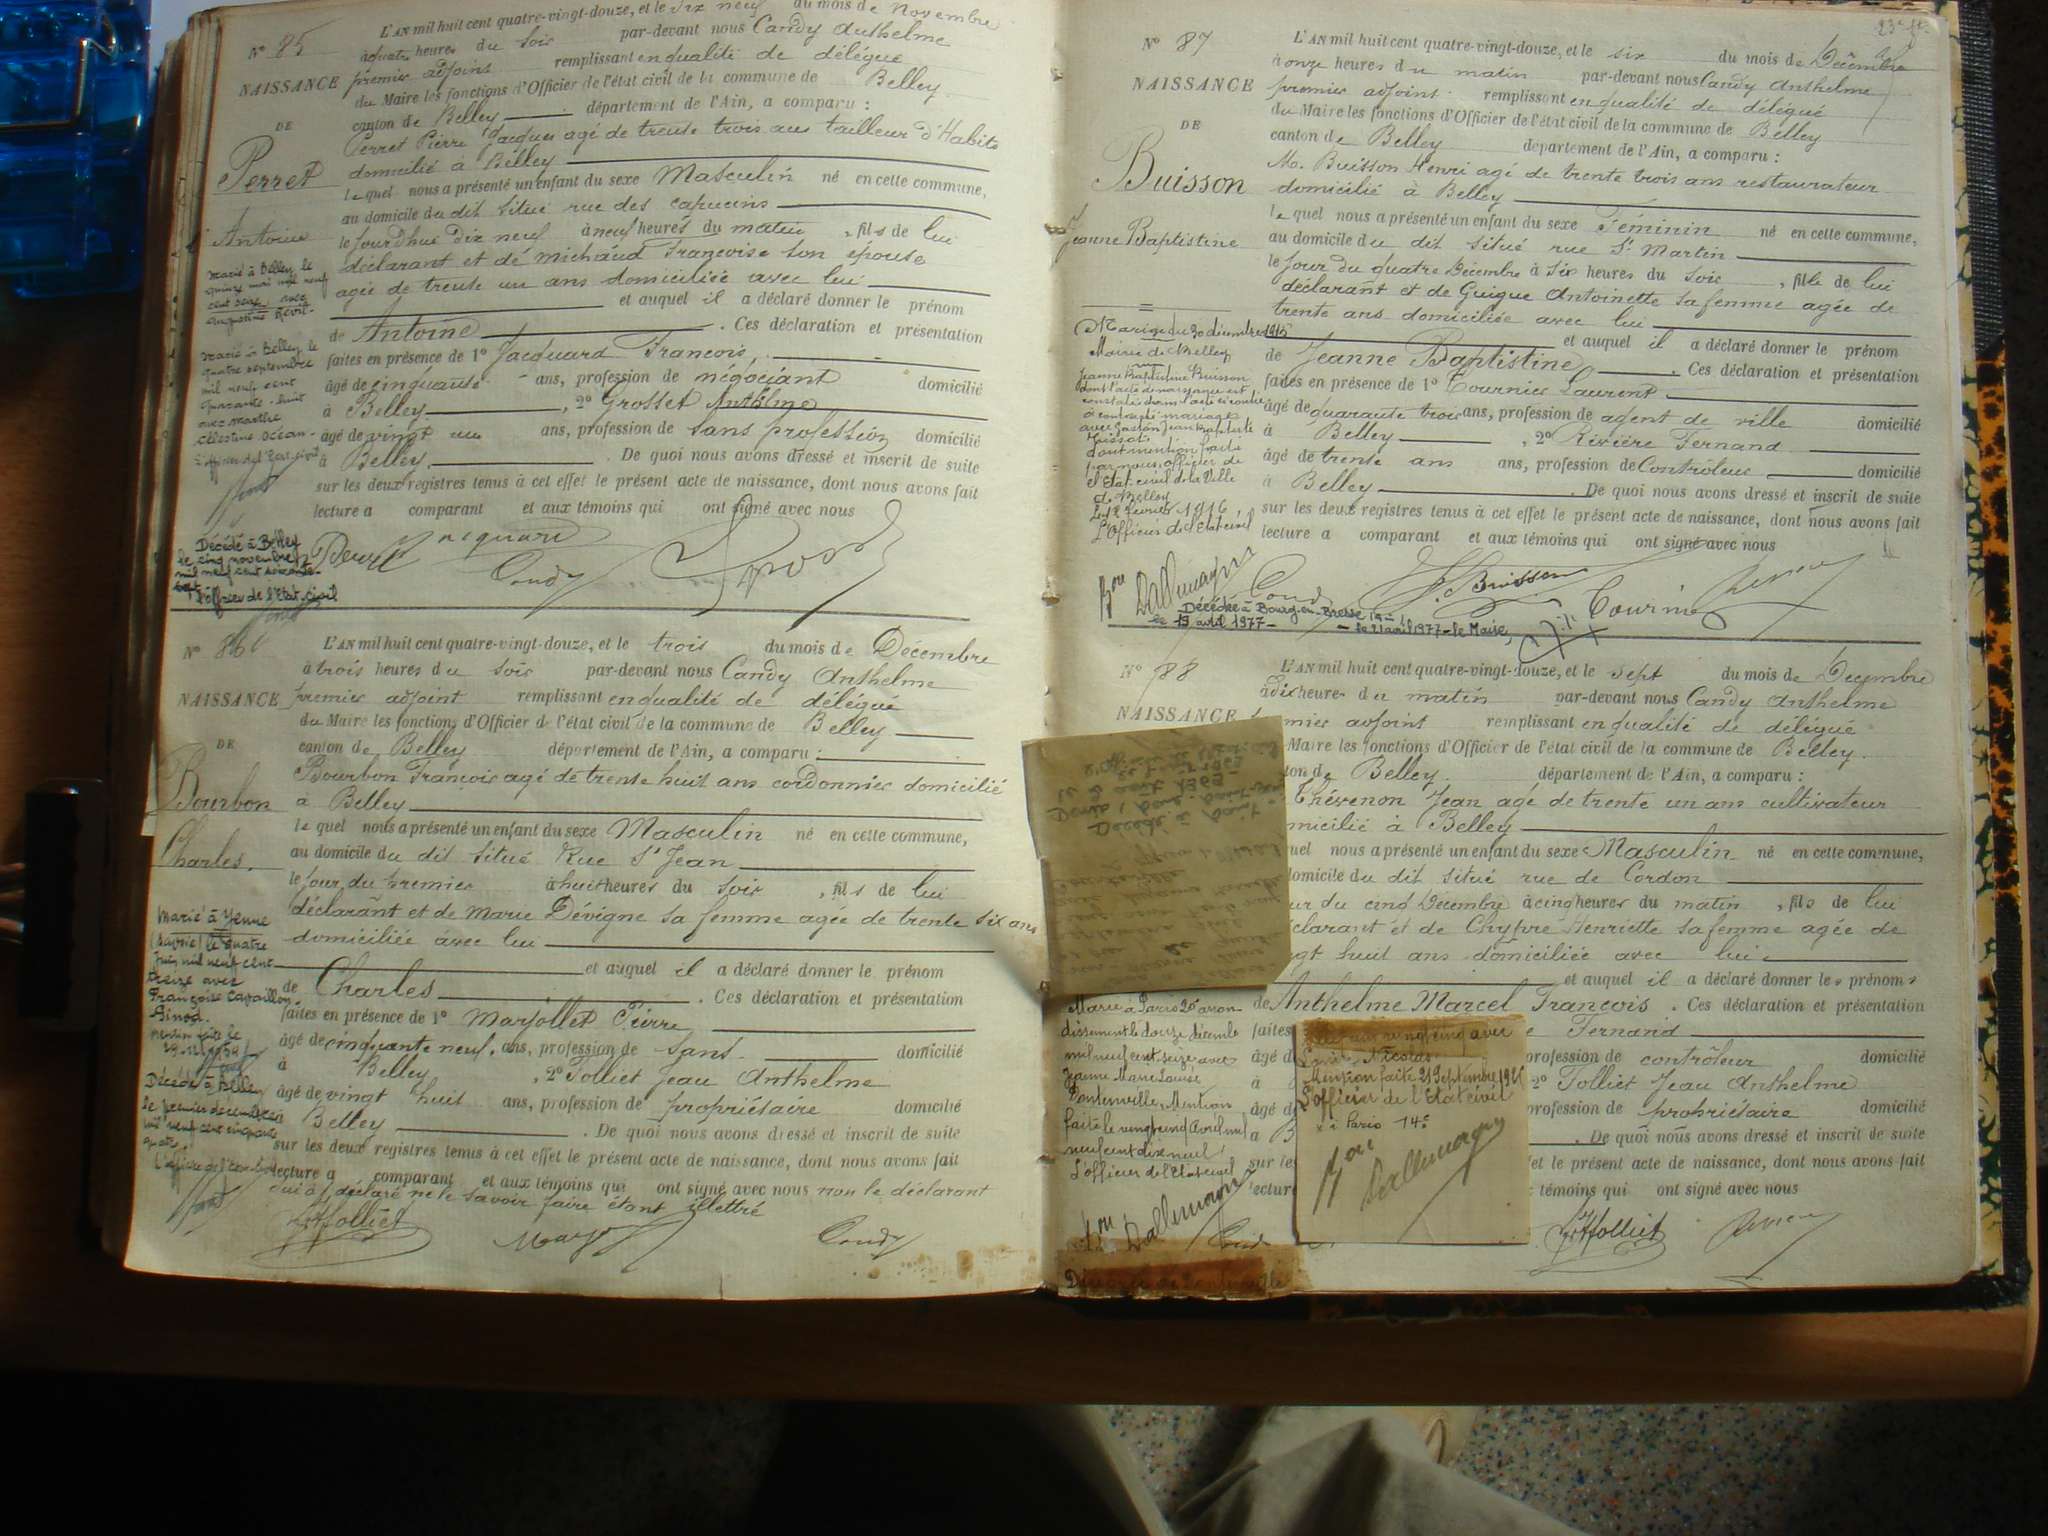 L'AN mil huit cent quatre-vingt-douze, et le dix neuf du mois de Novembre
N° 85 à quatre heures du soir par-devant nous Candy Anthelme
NAISSANCE premier adjoint remplissant en qualité de délégué
du Maire les fonctions d'Officier de l'état civil de la commune de Belley
DE canton de Belley département de l'Ain, a comparu :
Perret Pierre Jacques agé de trente trois ans tailleur d'Habits
Perret domicilié à Belley
le quel nous a présenté un enfant du sexe Masculin né en cette commune,
au domicile du dit situé rue des capucins
Antoine le jourd'hui dix neuf à neuf heures du matin, fils de lui
déclarant et de Michaud Françoise son épouse
agée de trente un ans domiciliée avec lui
et auquel il a déclaré donner le prénom
de Antoine. Ces déclaration et présentation
faites en présence de 1° Jacquard François,
âgé de cinquante ans, profession de négociant domicilié
à Belley, 2° Grosset Anthelme
âgé de vingt un ans, profession de sans profession domicilié
à Belley. De quoi nous avons dressé et inscrit de suite
sur les deux registres tenus à cet effet le présent acte de naissance, dont nous avons fait
lecture a comparant et aux témoins qui ont signé avec nous
Marié à Belley le
quinze mai mil neuf
cent seize avec
Augustine Révil
Marié à Belley le
quatre septembre
mil neuf cent
quarante-huit
avec Marthe
Célestine
L'officier de l'Etat civil
Décédé à Belley
le cinq novembre
mil neuf cent soixante-
L'officier de l'Etat civil
Perret Jacquard
Candy
N° 86 L'AN mil huit cent quatre-vingt-douze, et le trois du mois de Décembre
à trois heures du soir par-devant nous Candy Anthelme
NAISSANCE premier adjoint remplissant en qualité de délégué
du Maire les fonctions d'Officier de l'état civil de la commune de Belley
DE canton de Belley département de l'Ain, a comparu :
Bourbon François agé de trente huit ans cordonnier domicilié
Bourbon à Belley
le quel nous a présenté un enfant du sexe Masculin né en cette commune,
Charles. au domicile du dit situé Rue St Jean
le jour du premier à huit heures du soir, fils de lui
déclarant et de Marie Dévigne sa femme agée de trente six ans
domiciliée avec lui
et auquel il a déclaré donner le prénom
de Charles. Ces déclaration et présentation
faites en présence de 1° Marjollet Pierre
âgé de cinquante neuf ans, profession de sans domicilié
à Belley, 2° Tolliet Jean Anthelme
âgé de vingt huit ans, profession de propriétaire domicilié
à Belley. De quoi nous avons dressé et inscrit de suite
sur les deux registres tenus à cet effet le présent acte de naissance, dont nous avons fait
lecture a comparant et aux témoins qui ont signé avec nous non le déclarant
qui a déclaré ne le savoir faire étant illettré
Marié à Yenne
(Savoie) le quatre
juin mil neuf cent
treize avec
Françoise Cavaillon
Ginod.
mention faite le
Décédé à Belley
le premier decembre
mil neuf cent cinquante
quatre.
L'officier de l'Etat civil
JATolliet Candy
23e ft
N° 87 L'AN mil huit cent quatre-vingt-douze, et le six du mois de Décembre
à onze heures du matin par-devant nous Candy Anthelme
NAISSANCE premier adjoint remplissant en qualité de délégué
du Maire les fonctions d'Officier de l'état civil de la commune de Belley
DE canton de Belley département de l'Ain, a comparu :
M. Buisson Henri agé de trente trois ans restaurateur
Buisson domicilié à Belley
le quel nous a présenté un enfant du sexe Féminin né en cette commune,
Jeanne Baptistine au domicile du dit situé rue St Martin
le jour du quatre Décembre à six heures du soir, fille de lui
déclarant et de Guigue Antoinette sa femme agée de
trente ans domiciliée avec lui
et auquel il a déclaré donner le prénom
de Jeanne Baptistine. Ces déclaration et présentation
faites en présence de 1° Tournier Laurent
âgé de quarante trois ans, profession de agent de ville domicilié
à Belley, 2° Rivière Fernand
âgé de trente ans ans, profession de Contrôleur domicilié
à Belley. De quoi nous avons dressé et inscrit de suite
sur les deux registres tenus à cet effet le présent acte de naissance, dont nous avons fait
lecture a comparant et aux témoins qui ont signé avec nous
Mariage du 30 décembre 1915
Mairie de Belley
Jeanne Baptistine Buisson
dont l'acte de naissance est
constaté dans l'acte ci contre
a contracté mariage
avec Gaston Jean Baptiste
dont mention faite
par nous, officier de
l'Etat civil de la Ville
de Belley
Le 12 février 1916
L'Officier de l'Etat civil
Bon Dallemagne Candy Buisson Tournier
Décédée à Bourg-en-Bresse
le 19 avril 1977 - le 21 avril 1977 - le Maire,
N° 88 L'AN mil huit cent quatre-vingt-douze, et le sept du mois de Décembre
à dix heures du matin par-devant nous Candy Anthelme
NAISSANCE premier adjoint remplissant en qualité de délégué
Maire les fonctions d'Officier de l'état civil de la commune de Belley.
ton de Belley. département de l'Ain, a comparu :
Thévenon Jean agé de trente un ans cultivateur
micilié à Belley
quel nous a présenté un enfant du sexe Masculin né en cette commune,
domicile du dit situé rue de Cordon
ur du cinq Décembre à cinq heures du matin, fils de lui
clarant et de Chypre Henriette sa femme agée de
gt huit ans domiciliée avec lui
et auquel il a déclaré donner les prénoms
de Anthelme Marcel François. Ces déclaration et présentation
faites Fernand
âgé d profession de contrôleur domicilié
à 2° Tolliet Jean Anthelme
âgé d profession de propriétaire domicilié
à B . De quoi nous avons dressé et inscrit de suite
sur les et le présent acte de naissance, dont nous avons fait
lecture témoins qui ont signé avec nous
Marié à Paris 20e arron-
dissement le douze décembre
mil neuf cent seize avec
Jeanne Marie Louise
Pontenville, Mention
faite le vingt cinq Avril mil
neuf cent dix neuf
L'officier de l'Etat civil
Bon Dallemagne
vingt cinq avec
Nicolas
Mention faite 21 Septembre 1926
L'officier de l'Etat civil
x à Paris 14e
Bon Dallemagne
JATolliet
Décédé à Saint
Denis
le 2 août 1969